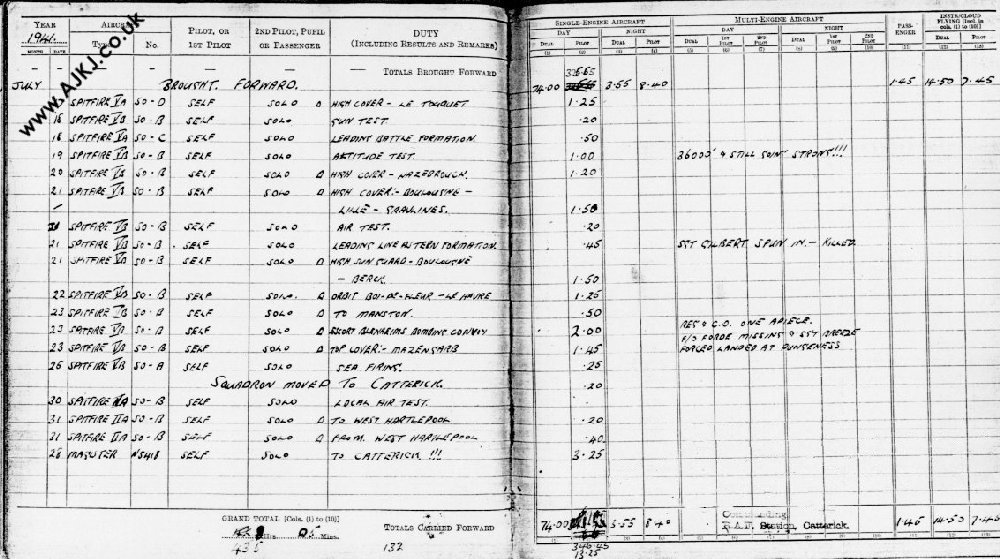 YEAR AIRCRAFT PILOT, OR 2ND PILOT, PUPIL DUTY SINGLE-ENGINE AIRCRAFT MULTI-ENGINE AIRCRAFT PASS- INSTR/CLOUD
1941 1ST PILOT OR PASSENGER (INCLUDING RESULTS AND REMARKS) DAY NIGHT DAY NIGHT ENGER FLYING [Incl. in cols. (1) to (10)]
MONTH DATE Type No. DUAL PILOT DUAL PILOT DUAL 1ST PILOT 2ND PILOT DUAL 1ST PILOT 2ND PILOT DUAL PILOT
(1) (2) (3) (4) (5) (6) (7) (8) (9) (10) (11) (12) (13)
— — — — — — TOTALS BROUGHT FORWARD
JULY BROUGHT FORWARD. 74.00 3.55 8.40 1.45 14.50 7.45
www.AJKJ.co.uk
SPITFIRE VA SO-D SELF SOLO HIGH COVER - LE TOUQUET 1.25
16 SPITFIRE VB SO-B SELF SOLO GUN TEST .20
18 SPITFIRE VA SO-C SELF SOLO LEADING BATTLE FORMATION .50
19 SPITFIRE VB SO-B SELF SOLO ALTITUDE TEST 1.00 36000' & STILL GOING STRONG!!!
20 SPITFIRE VB SO-B SELF SOLO HIGH COVER - HAZEBROUCK 1.20
21 SPITFIRE VB SO-B SELF SOLO HIGH COVER:- BOULOGNE -
LILLE - GRAVLINES. 1.50
21 SPITFIRE VB SO-B SELF SOLO AIR TEST. .20
21 SPITFIRE VB SO-B SELF SOLO LEADING LINE ASTERN FORMATION. .45 SGT GILBERT SPUN IN - KILLED.
21 SPITFIRE VB SO-B SELF SOLO HIGH SUN GUARD - BOULOGNE
- BERCK. 1.50
22 SPITFIRE VB SO-B SELF SOLO. ORBIT - LE HAVRE 1.25
23 SPITFIRE VB SO-B SELF SOLO TO MANSTON. .50
23 SPITFIRE VB SO-B SELF SOLO ESCORT BLENHEIMS BOMBING CONVOY 2.00 & C.O. ONE APIECE.
F/S FORDE MISSING & SGT BREEZE
23 SPITFIRE VB SO-B SELF SOLO TOP COVER:- MAZENGARB 1.45 FORCED LANDED AT DUNGENESS
26 SPITFIRE VB SO-A SELF SOLO SEA FIRING. .25
SQUADRON MOVED TO CATTERICK. .20
30 SPITFIRE IIA SO-B SELF SOLO LOCAL AIR TEST.
31 SPITFIRE IIA SO-B SELF SOLO TO WEST HARTLEPOOL .20
31 SPITFIRE IIA SO-B SELF SOLO FROM WEST HARTLEPOOL .40
28 MAGISTER SELF SOLO TO CATTERICK !!! 3.25
GRAND TOTAL [Cols. (1) to (10)] TOTALS CARRIED FORWARD 74.00 3.55 8.40 R.A.F. Station, Catterick. 1.45 14.50 7.45
Hrs. 05 Mins.
132 346.45
13.25